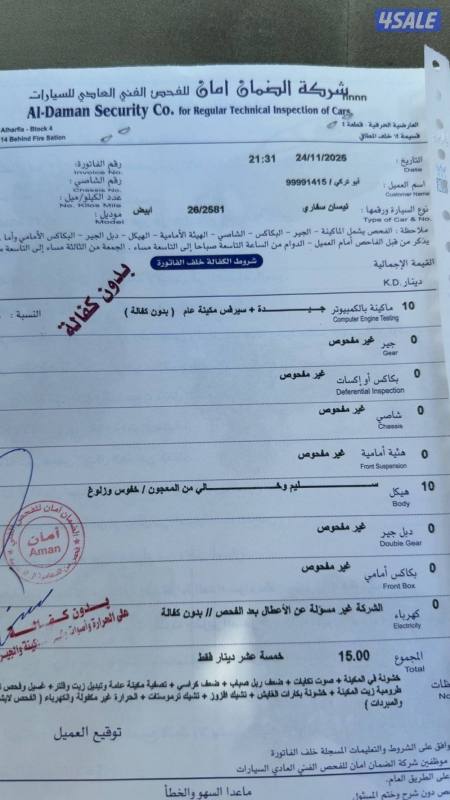 4SALE
شركة الضمان امان للفحص الفني العادي للسيارات
Al-Daman Security Co. for Regular Technical Inspection of Cars
العارضية الحرفية - قطعة ٤
Alharfia - Block 4
14 Behind Fire Sation
التاريخ : 24/11/2025 21:31 رقم الفاتورة:
Date Invoice No.
اسم العميل : أبو تركي / 99991415 رقم الشاصي :
Customer Name Chassis No.
عدد الكيلو/ميل :
No. Kilos Mile
نوع السيارة ورقمها : نيسان سفاري 26/2581 ابيض موديل :
Type of Car & No. Model
ملاحظة : الفحص يشمل الماكينة - الجير - البكاكس - الشاصي - الهيئة الأمامية - الهيكل - دبل الجير - البكاكس الأمامي وأما
يذكر من قبل الفاحص أمام العميل - الدوام من الساعة التاسعة صباحا إلى التاسعة مساء . الجمعة من الثالثة مساء إلى التاسعة
شروط الكفالة خلف الفاتورة
القيمة الإجمالية
دينار K.D.
بدون كفالة
10 ماكينة بالكمبيوتر جيدة + سيرفس مكينة عام ( بدون كفالة ) النسبة :
Computer Engine Testing
0 جير غير مفحوص
Gear
0 بكاكس أو إكسات غير مفحوص
Deferential Inspection
0 شاصي غير مفحوص
Chassis
0 هيئة أمامية غير مفحوص
Front Suspension
10 هيكل سليم وخالي من المعجون / خفوس وزلوغ
Body
0 دبل جير غير مفحوص
Double Gear
0 بكاكس أمامي غير مفحوص
Front Box
0 كهرباء الشركة غير مسؤلة عن الأعطال بعد الفحص // بدون كفالة
Electricity
أمان
Aman
بدون كفالة
على الحرارة وأصوات
15.00 المجموع خمسة عشر دينار فقط
Total
خشونة في المكينة + صوت تكايات + ضعف ربل صباب + ضعف كراسي + تصفية مكينة عامة وتبديل زيت وفلتر + غسيل وفحص
طرومبة زيت المكينة + خشونة بكارات القايش + تشيك افلاوز + تشيك ترموستات + الحرارة غير مكفولة والكهرباء ( الفحص
والمبردات )
توقيع العميل
وافق على الشروط والتعليمات المسجلة خلف الفاتورة
موظفين شركة الضمان امان للفحص الفني العادي السيارات
على الطريق العام.
ص دون شرح وختم المسئول
ماعدا السهو والخطأ